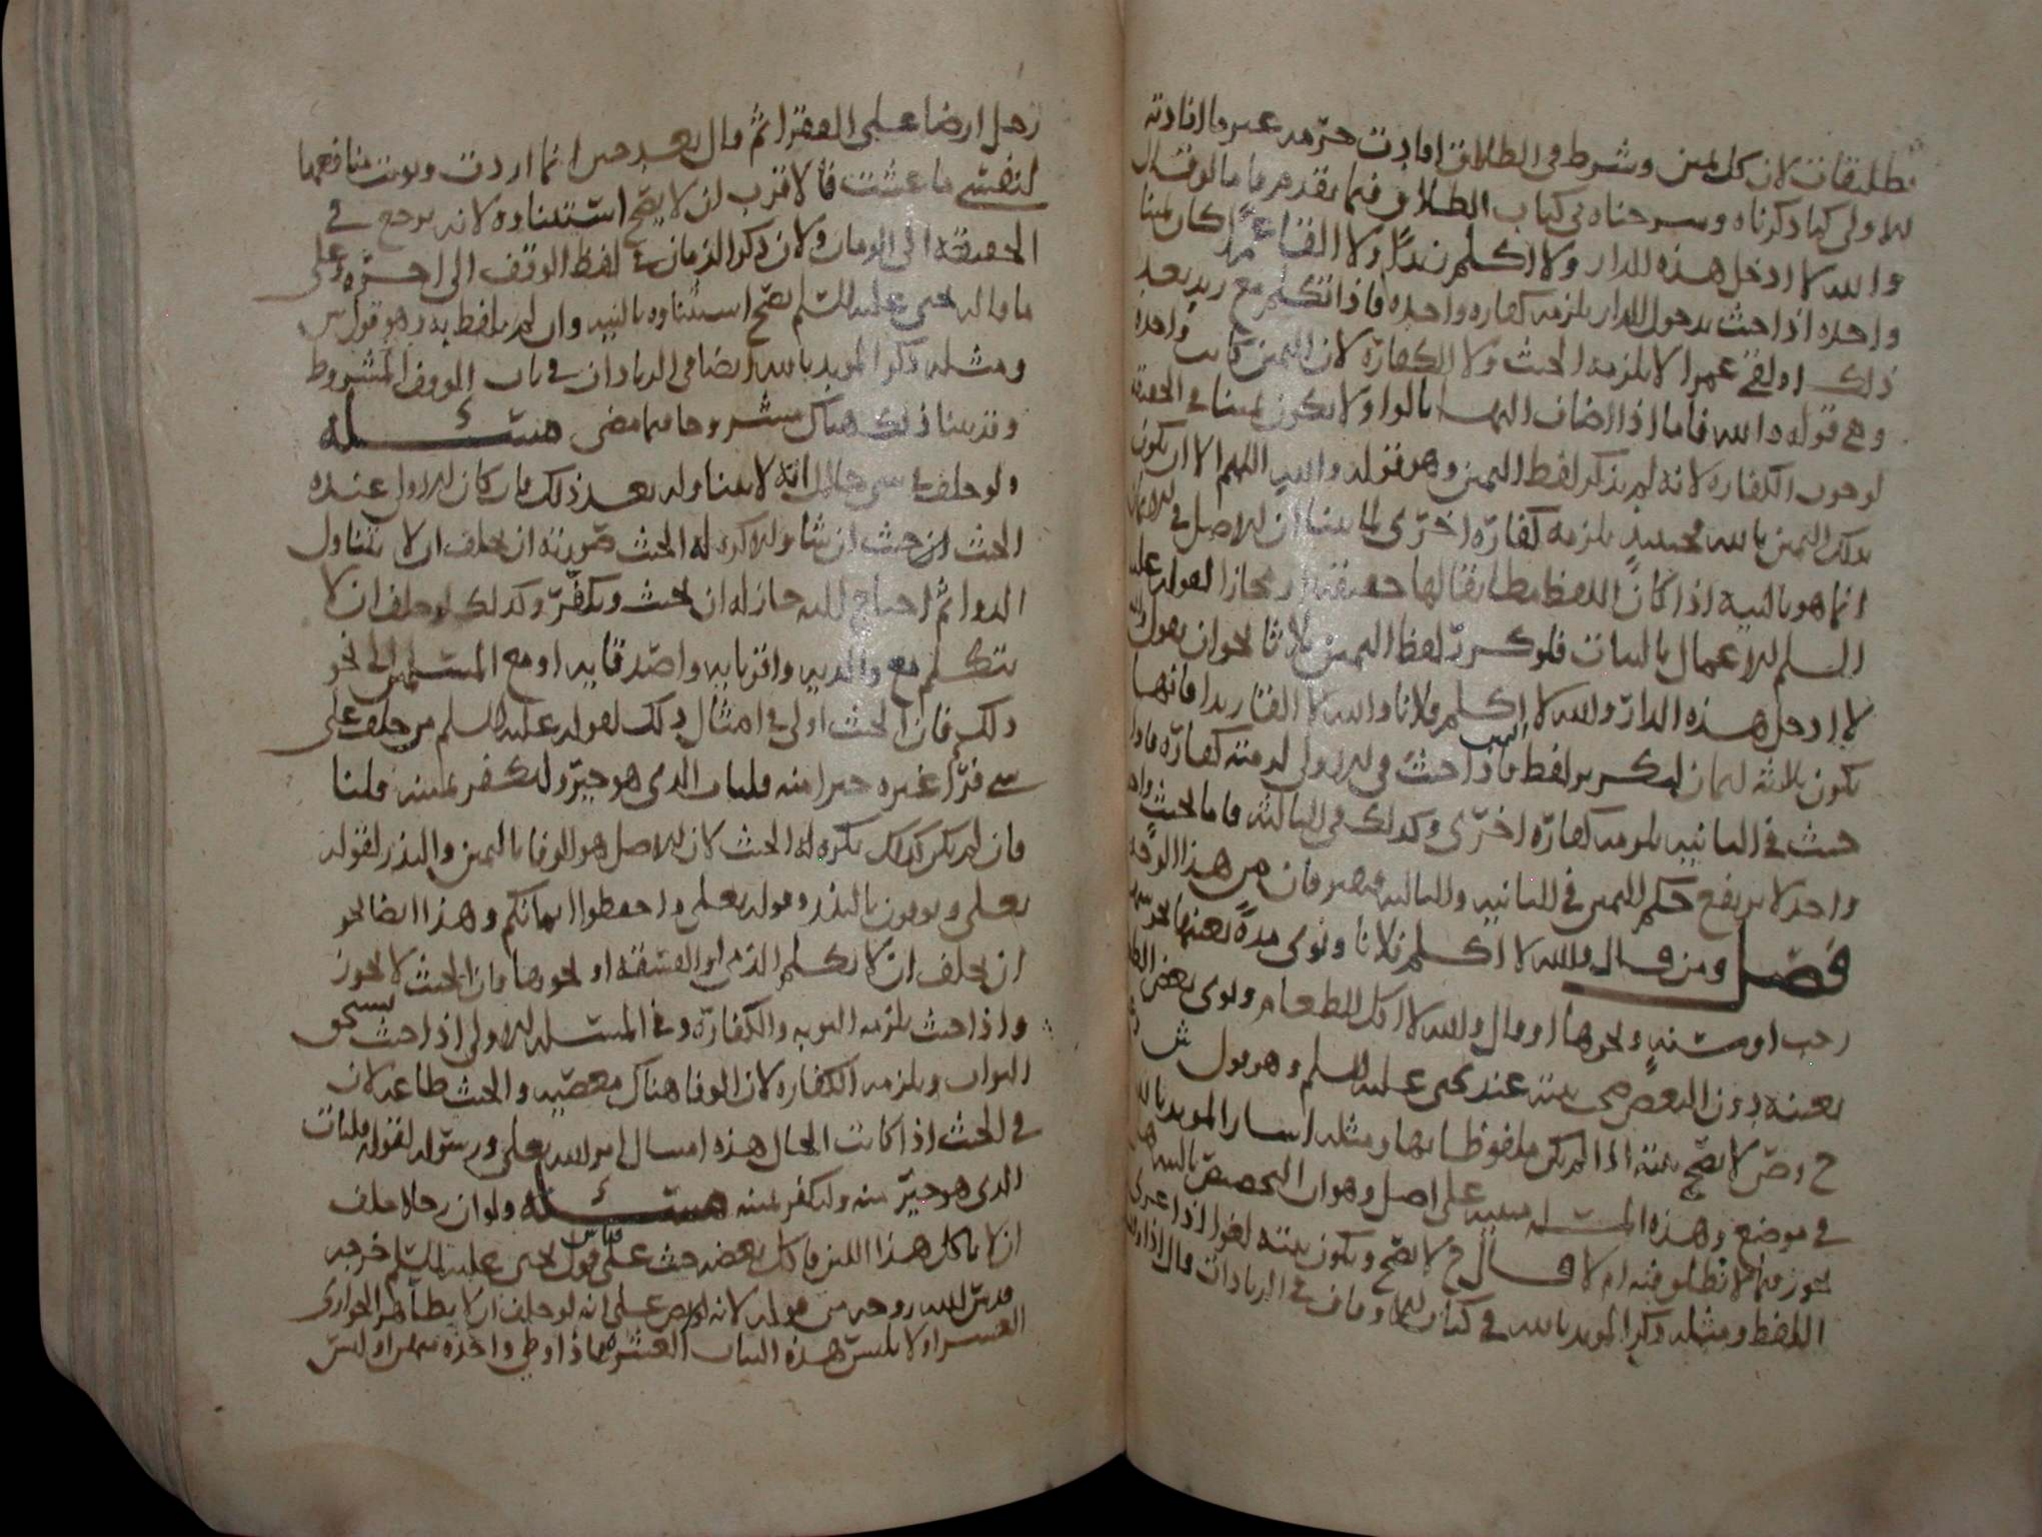 تطليقات لان كل يمين وشرط في الطلاق افادت حرمه غير ما افادته
الاولى كما ذكرناه وشرحناه في كتاب الطلاق فيما تقدم فاما لو قال
والله لا ادخل هذه الدار ولا اكلم زيدًا ولا القا عمرا كان يمينا
واحده اذا حنث بدخول الدار يلزمه كفاره واحده فاذا تكلم مع زيد بعد
ذلك او لقي عمرا لا يلزمه الحنث ولا الكفارة لان اليمين كانت واحده
وهي قوله والله فاما اذا اضاف اليها بالواو لا يكون يمينا في الحقيقة
لوجوب الكفاره لانه لم يذكر لفظ اليمين وهو قوله والله اللهم الا ان يكون
بذلك اليمين بالله فحينئذٍ يلزمه كفارة اخرى لما بينا ان الاصل في الايمان
انما هو بالنية اذا كان اللفظ مطابقا لها حقيقة او مجازا لقوله عليه
السلم الاعمال بالنيات فلو كرر لفظ اليمين ثلاثا نحو ان يقول والله
لا ادخل هذه الدار والله لا اكلم فلانا والله لا القا زيدا فانها
تكون ثلاثه ايمان لتكرير لفظ اليمين فاذا حنث في الاولى لزمته كفارة فاذا
حنث في الثانيه يلزمه كفارة اخرى وكذلك في الثالثه فاما بحنثٍ واحد
واحد لا يرتفع حكم اليمين في الثانيه والثالثه من هذا الوجه
فصل ومن قال والله لا اكلم فلانا ونوى مدةً بعينها نحو شهر
رجب او سنهٍ ونحوها او قال والله لا اكل الطعام ونوى بعض الطعام
بعينه دون البعض صحت نيته عند يحيى عليه السلم وهو قول ش
ح وص لا تصح نيته اذا لم يكن ملفوظا بها ومثله اشار المويد بالله
في موضع وهذه المسئله مبنيه على اصل وهو ان التخصيص بالنيه هل
يجوز فيما لا نطلق فيه ام لا قال ح لا يصح وتكون نيته لغوا اذا عرى
اللفظ ومثله ذكر المويد بالله في كتاب الاوقاف في الزيادات قال اذا وقف
رجل ارضا على الفقرا ثم قال بعد حين انما اردت ونويت منافعها
لنفسي ما عشت فالاقرب ان لا يصح استثناوه لانه يرجع في
الحقيقه الى الزمان ولان ذكر الزمان في لفظ الوقف الى اخره وعلى
ما قاله يحيى عليه السلم يصح استثناوه بالنيه وان لم يلفظ به وهو قول ش
ومثله ذكر المويد بالله ايضا في الزيادات في باب الوقف المشروط
وقد بينا ذلك هناك مشروحا فيما مضى مسئله
ولو حلف في شي حلال انه لا يتناوله بعد ذلك فان كان الاولى عنده
الحنث حنث ان شا والا كره له الحنث صورته ان يحلف ان لا يتناول
الدوا ثم احتاج اليه جاز له ان يحنث ويكفّر وكذلك لو حلف ان لا
يتكلم مع والديه واقربايه واصدقايه او مع المسلمين الى نحو
ذلك فان الحنث اولى في امثال ذلك لقوله عليه السلم من حلف على
شي فرآ غيره خيرا منه فليات الذي هو خير وليكفر يمينه قلنا
فان لم يكن كذلك يكره له الحنث لان الاصل هو الوفا باليمين والنذر لقوله
تعلى ويوفون بالنذر وقوله تعلى واحفظوا ايمانكم وهذا ايضا نحو
ان يحلف ان لا يكلم الذمى او الفسقه او نحوها فان الحنث لا يجوز
واذا حنث يلزمه التوبه والكفارة وفي المسئله الاولى اذا حنث يستحق
الثواب ويلزمه الكفاره لان الوفا هناك معصيه والحنث طاعه لان
في الحنث اذا كانت الحال هذه امتثال امر الله تعلى ورسوله لقوله فليات
الذي هو خير منه وليكفر يمينه مسئله ولو ان رجلا حلف
ان لا ياكل هذا اللبن فاكل بعضه حنث على قياس قول يحيى عليه السلم خرجه
قدس الله روحه من قوله لانه نص على انه لو حلف ان لا يطا هذه الجواري
العشر او لا يلبس هذه الثياب العشره فاذا وطي واحده منهن او لبس